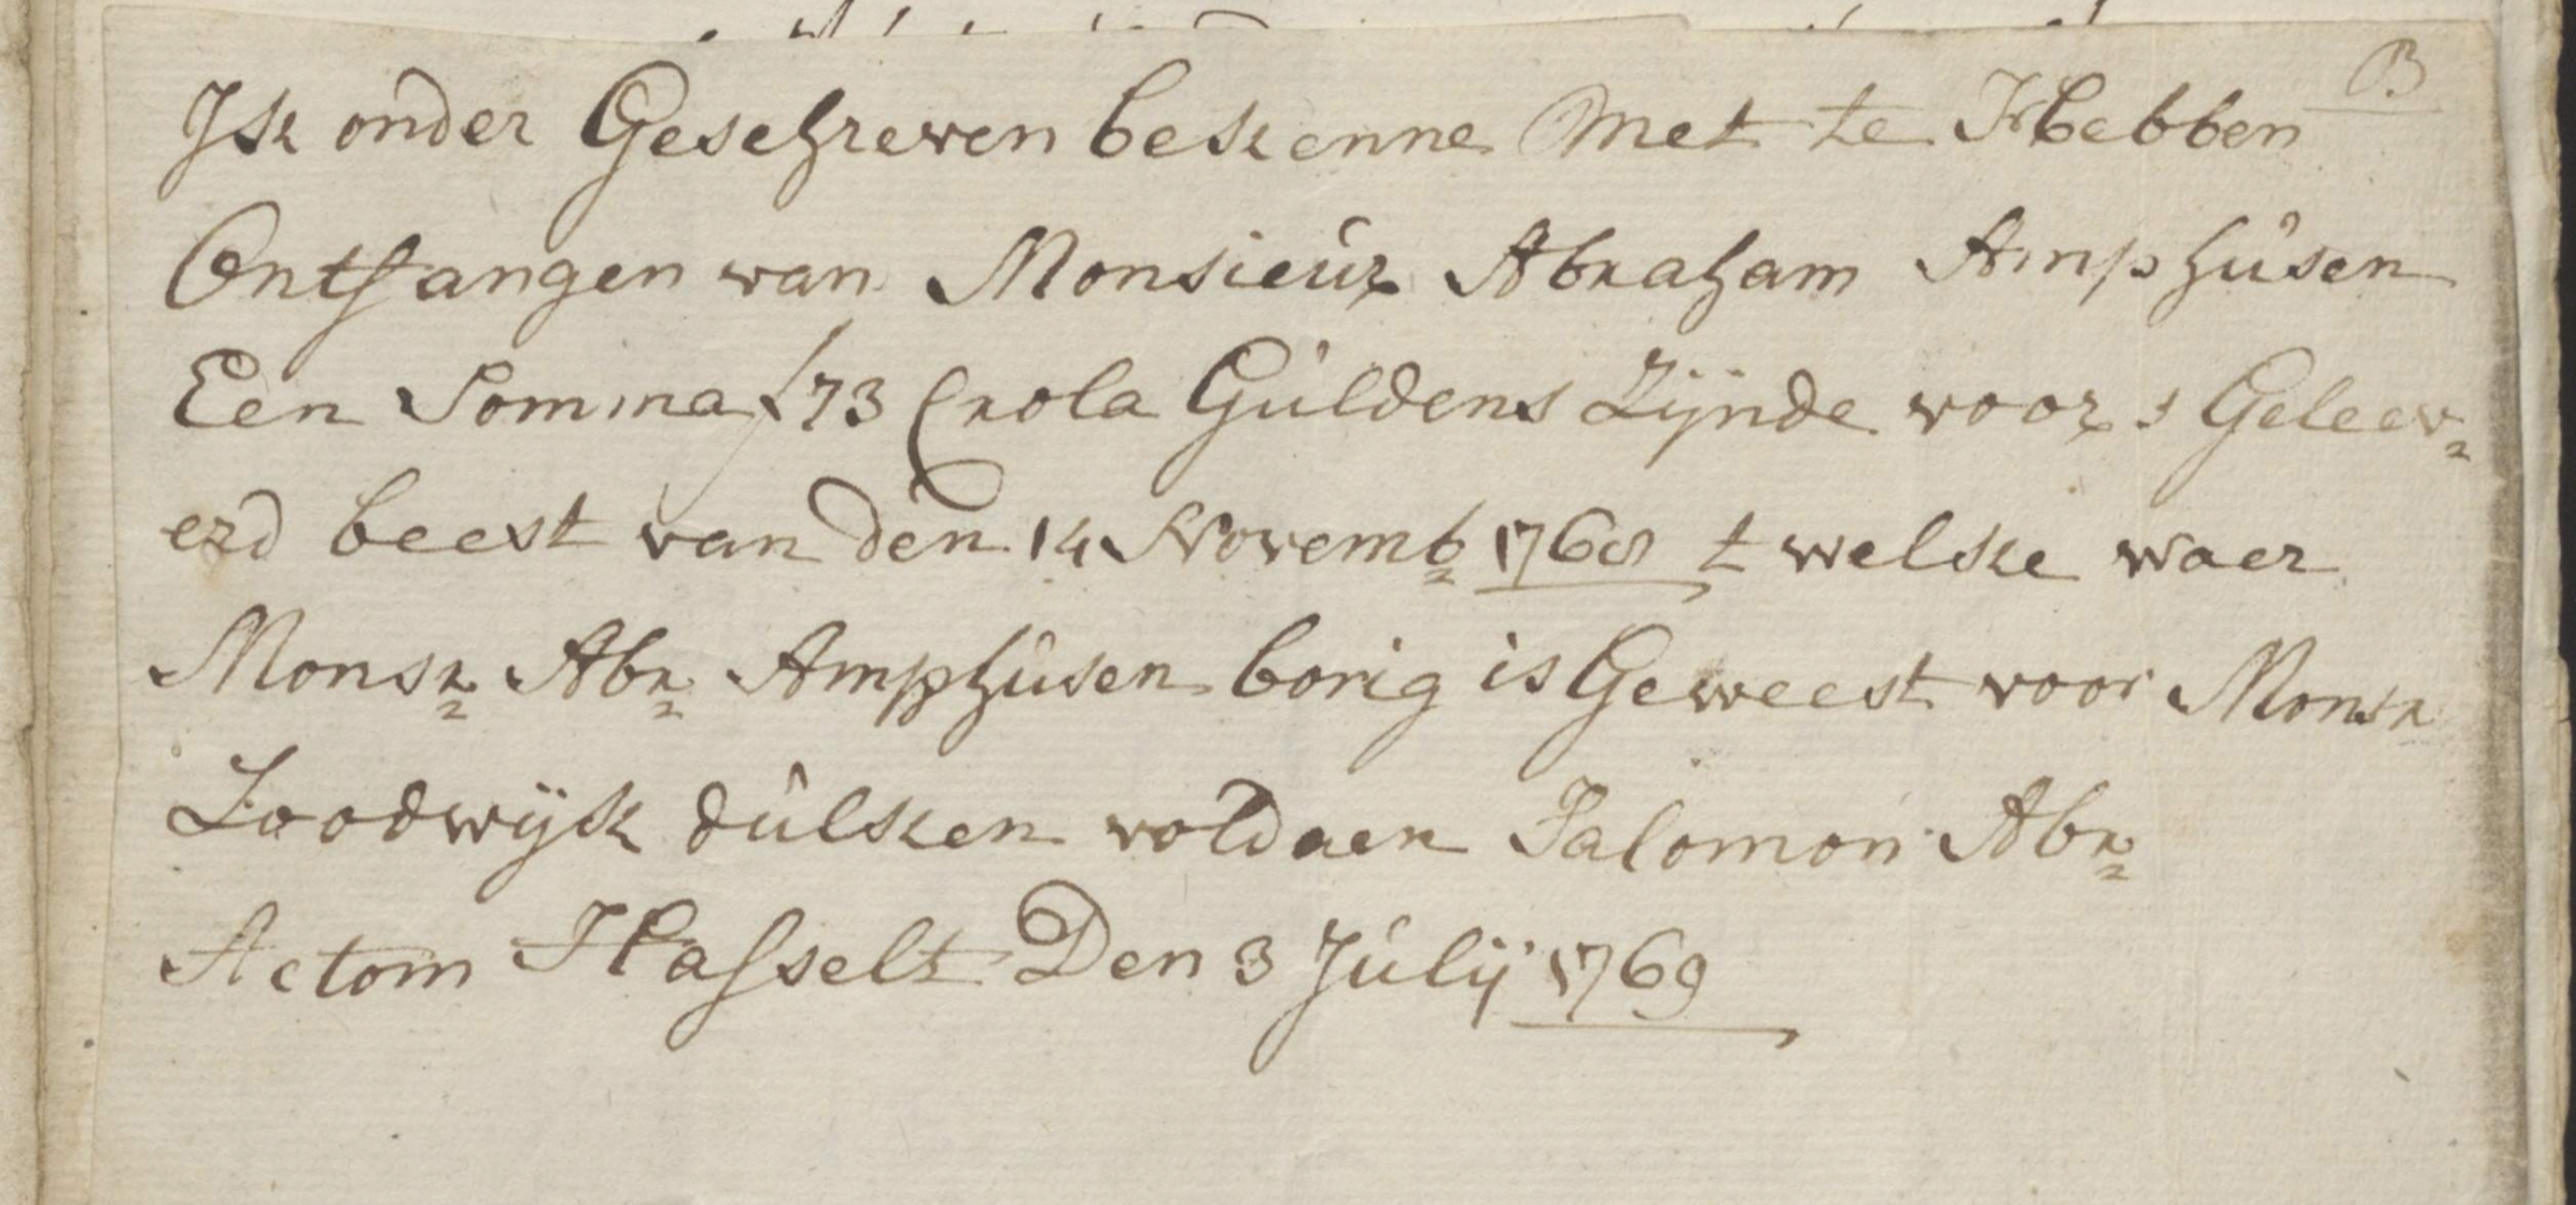 B
Jk onder Geschreven bekenne Met te Hebben
Ontfangen van Monsieur Abraham Amphusen
Een Somma f 73 Crola Guldens Zijnde voor s Geleev=
erd beest van den 14 Novemb 1768 t welke waer
Monsr Abr Amphusen borig is Geweest voor Monsr
Loodwijk dulken voldaen Salomon Abr
Actom Hasselt Den 3 Julij 1769